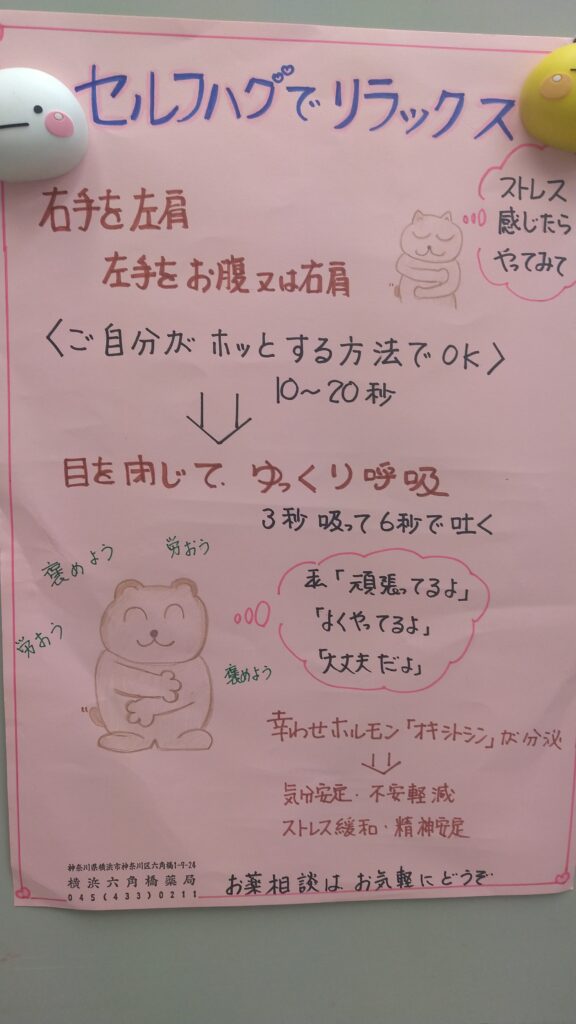 セルフハグでリラックス
ストレス
感じたら
やってみて
右手を左肩
左手をお腹又は右肩
〈ご自分がホッとする方法でOK〉
10〜20秒
目を閉じて、ゆっくり呼吸
3秒吸って6秒で吐く
褒めよう
労おう
労おう
褒めよう
私「頑張ってるよ」
「よくやってるよ」
「大丈夫だよ」
幸わせホルモン「オキシトシン」が分泌
気分安定・不安軽減
ストレス緩和・精神安定
神奈川県横浜市神奈川区六角橋1-9-24
横浜六角橋薬局
045(433)0211
お薬相談はお気軽にどうぞ